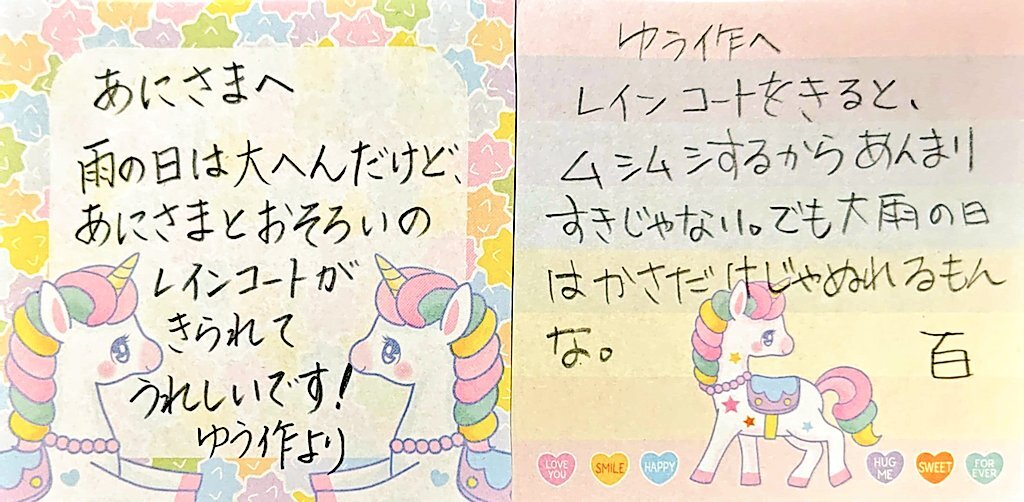 あにさまへ
雨の日は大へんだけど、
あにさまとおそろいの
レインコートが
きられて
うれしいです!
ゆう作より
ゆう作へ
レインコートをきると、
ムシムシするからあんまり
すきじゃない。でも大雨の日
はかさだけじゃぬれるもん
な。
百
LOVE YOU
SMILE
HAPPY
HUG ME
SWEET
FOR EVER